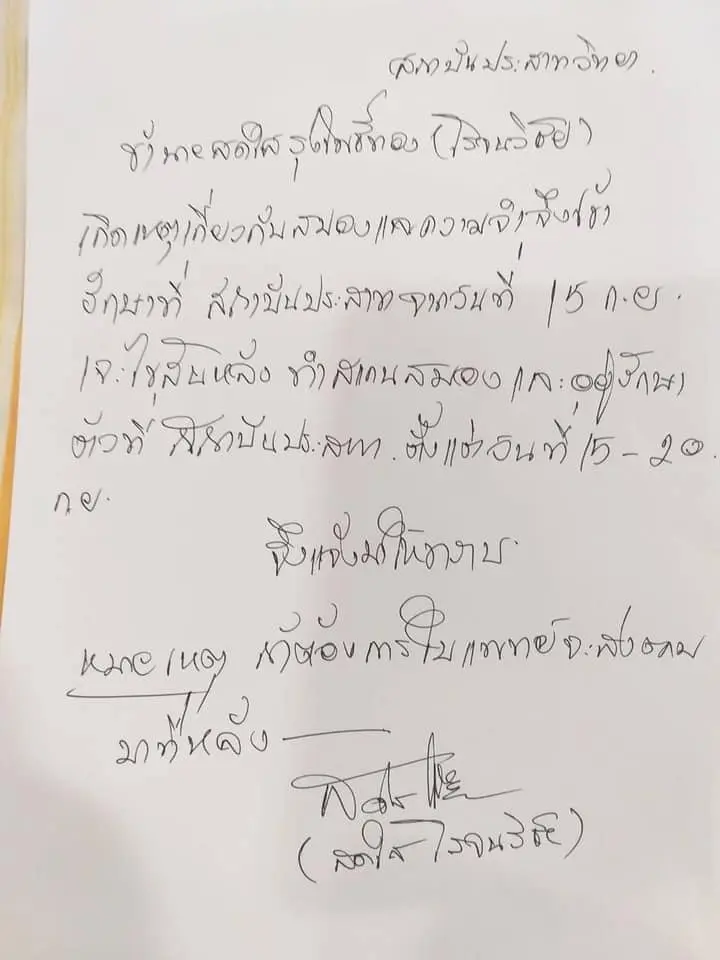 สถาบันประสาทวิทยา.
ข้านายสดใส รุ่งโพธิ์ทอง (โรจนวิชัย)
เกิดเหตุเกี่ยวกับสมองและความจำจึงเข้า
รักษาที่ สถาบันประสาท จากวันที่ 15 ก.ย.
เจาะไขสันหลัง ทำสแกนสมอง และอยู่รักษา
ตัวที่ สถาบันประสาท. ตั้งแต่วันที่ 15 - 20.
ก.ย.
จึงแจ้งมาให้ทราบ.
หมายเหตุ ถ้าต้องการใบแพทย์จะส่งตาม
มาทีหลัง
(สดใส โรจนวิชัย)